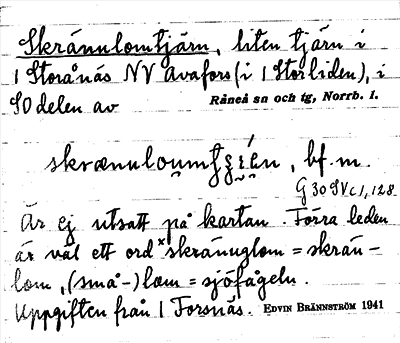 Skrännlomtjärn, liten tjärn i
1 Storånäs NV Avafors (i 1 Storliden), i
SO delen av Råneå sn och tg, Norrb. l.
bf. m.
G 30 SV c 1, 128
Är ej utsatt på kartan. Förra leden
är väl ett ord *skränglom = skrän-
lom, (små-)lom = sjöfågeln.
Uppgiften från 1 Forsnäs. EDVIN BRÄNNSTRÖM 1941